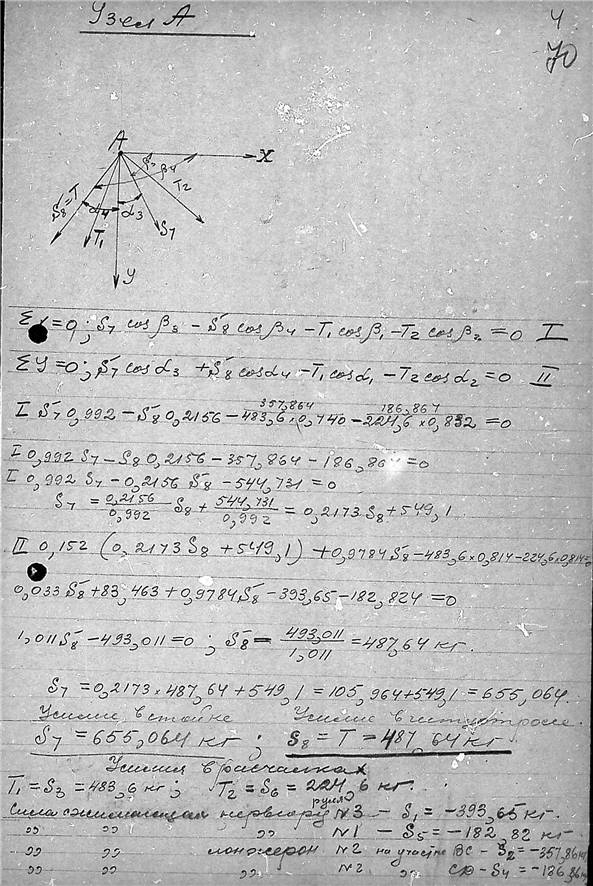 Узел А
4
70
A
X
β3
β4
T2
S8=T
α4
α3
T1
S7
y
ΣX=0; S7 cos β3 - S8 cos β4 - T1 cos β1 - T2 cos β2 = 0 I
ΣY=0; S7 cos α3 + S8 cos α4 - T1 cos α1 - T2 cos α2 = 0 II
357,864 186,867
I S7 0,992 - S8 0,2156 - 483,6 × 0,740 - 224,6 × 0,832 = 0
I 0,992 S7 - S8 0,2156 - 357,864 - 186,867 = 0
I 0,992 S7 - 0,2156 S8 - 544,731 = 0
S7 = 0,2156/0,992 S8 + 544,731/0,992 = 0,2173 S8 + 549,1
II 0,152 (0,2173 S8 + 549,1) + 0,9784 S8 - 483,6 × 0,814 - 224,6 × 0,814 = 0
0,033 S8 + 83,463 + 0,9784 S8 - 393,65 - 182,824 = 0
1,011 S8 - 493,011 = 0; S8 = 493,011/1,011 = 487,64 кг.
S7 = 0,2173 × 487,64 + 549,1 = 105,964 + 549,1 = 655,064.
Усилие в стойке Усилие в
S7 = 655,064 кг; S8 = T = 487,64 кг
Усилия в расчалках
T1 = S3 = 483,6 кг; T2 = S6 = 224,6 кг.
Сила сжимающая нервюру руля №3 - S1 = -393,65 кг.
" " " №1 - S5 = -182,82 кг
" " лонжерон №2 на участке ВС - S2 = -357,86 кг
" " " №2 " СD - S4 = -186,86 кг